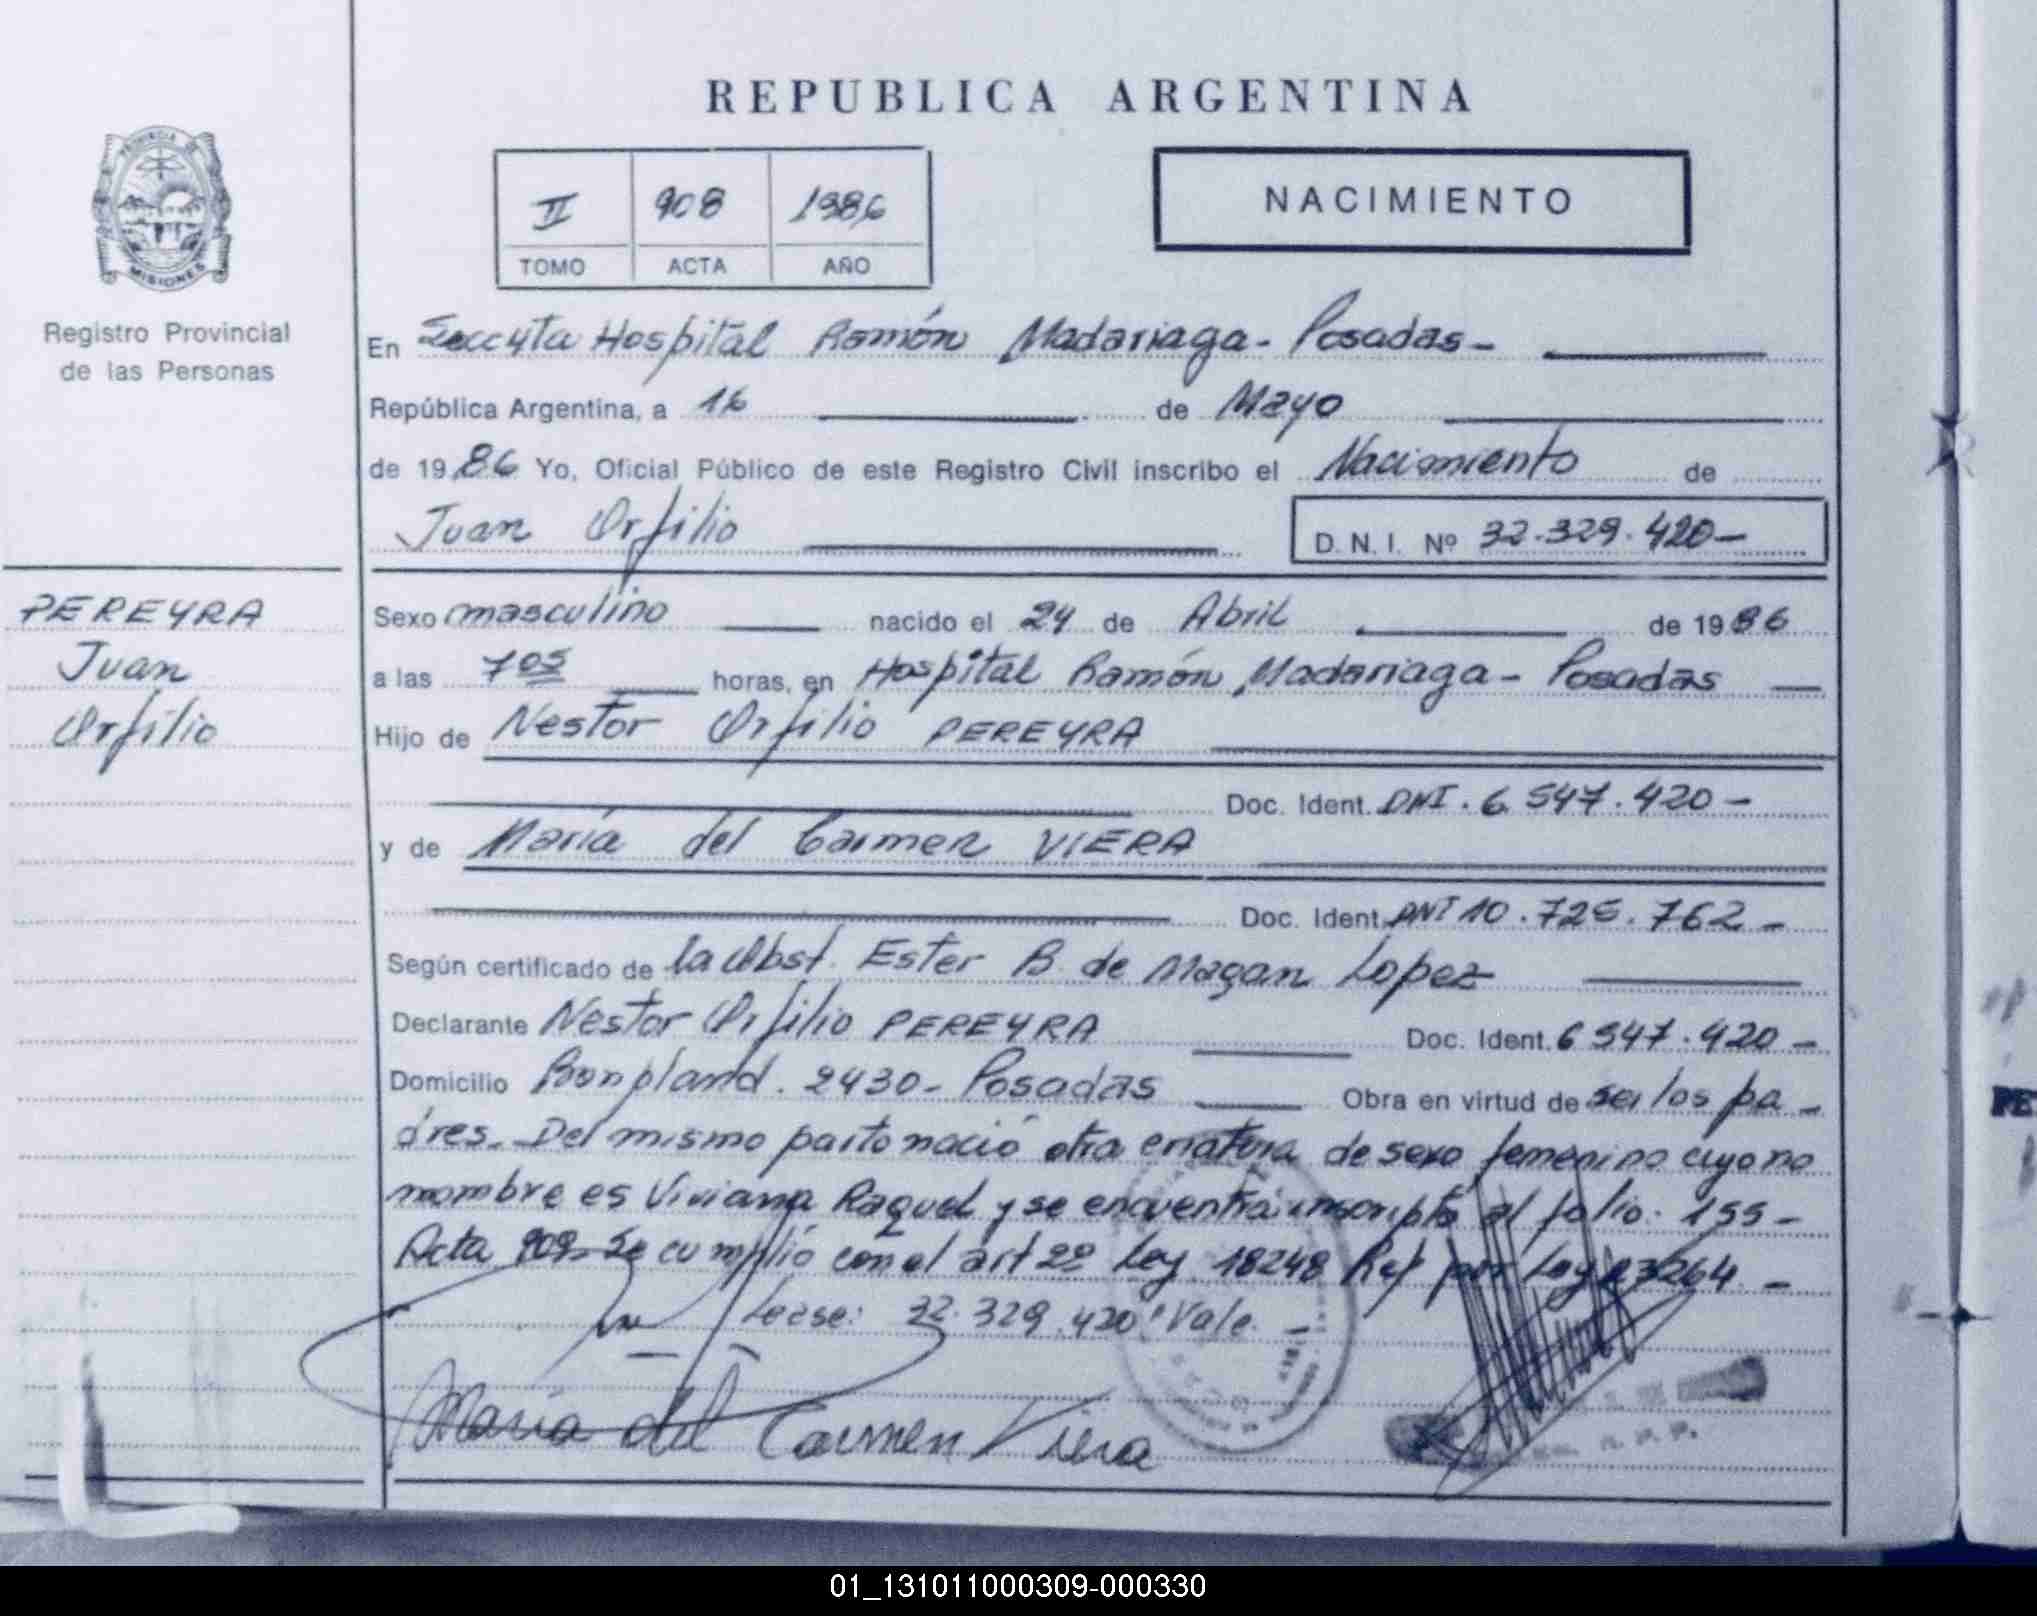 REPUBLICA ARGENTINA
PROVINCIA DE
MISIONES
Registro Provincial
de las Personas
II 908 1986
TOMO ACTA AÑO
NACIMIENTO
En Hospital Ramón Madariaga - Posadas -
República Argentina, a 16 de Mayo
de 1986 Yo, Oficial Público de este Registro Civil inscribo el Nacimiento de
Juan Orfilio
D. N. I. Nº 32.329.420 -
PEREYRA
Juan
Orfilio
Sexo masculino nacido el 24 de Abril de 1986
a las 7 05 horas, en Hospital Ramón Madariaga - Posadas
Hijo de Nestor Orfilio PEREYRA
Doc. Ident. DNI. 6.547.420 -
y de María del Carmen VIERA
Doc. Ident. DNI 10.725.762 -
Según certificado de la Obst. Ester B. de Magan Lopez
Declarante Nestor Orfilio PEREYRA Doc. Ident. 6 547.420 -
Domicilio Bonpland. 2430 - Posadas Obra en virtud de ser los pa -
dres. Del mismo parto nació otra criatura de sexo femenino cuyo no
nombre es Viviana Raquel y se encuentra inscripta al folio. 155 -
Acta 909 - Se cumplió con el art 2º Ley 18248 Ref por Ley 23264 -
Lease: 32.329.420 "Vale. -
María del Carmen Viera
01_131011000309-000330